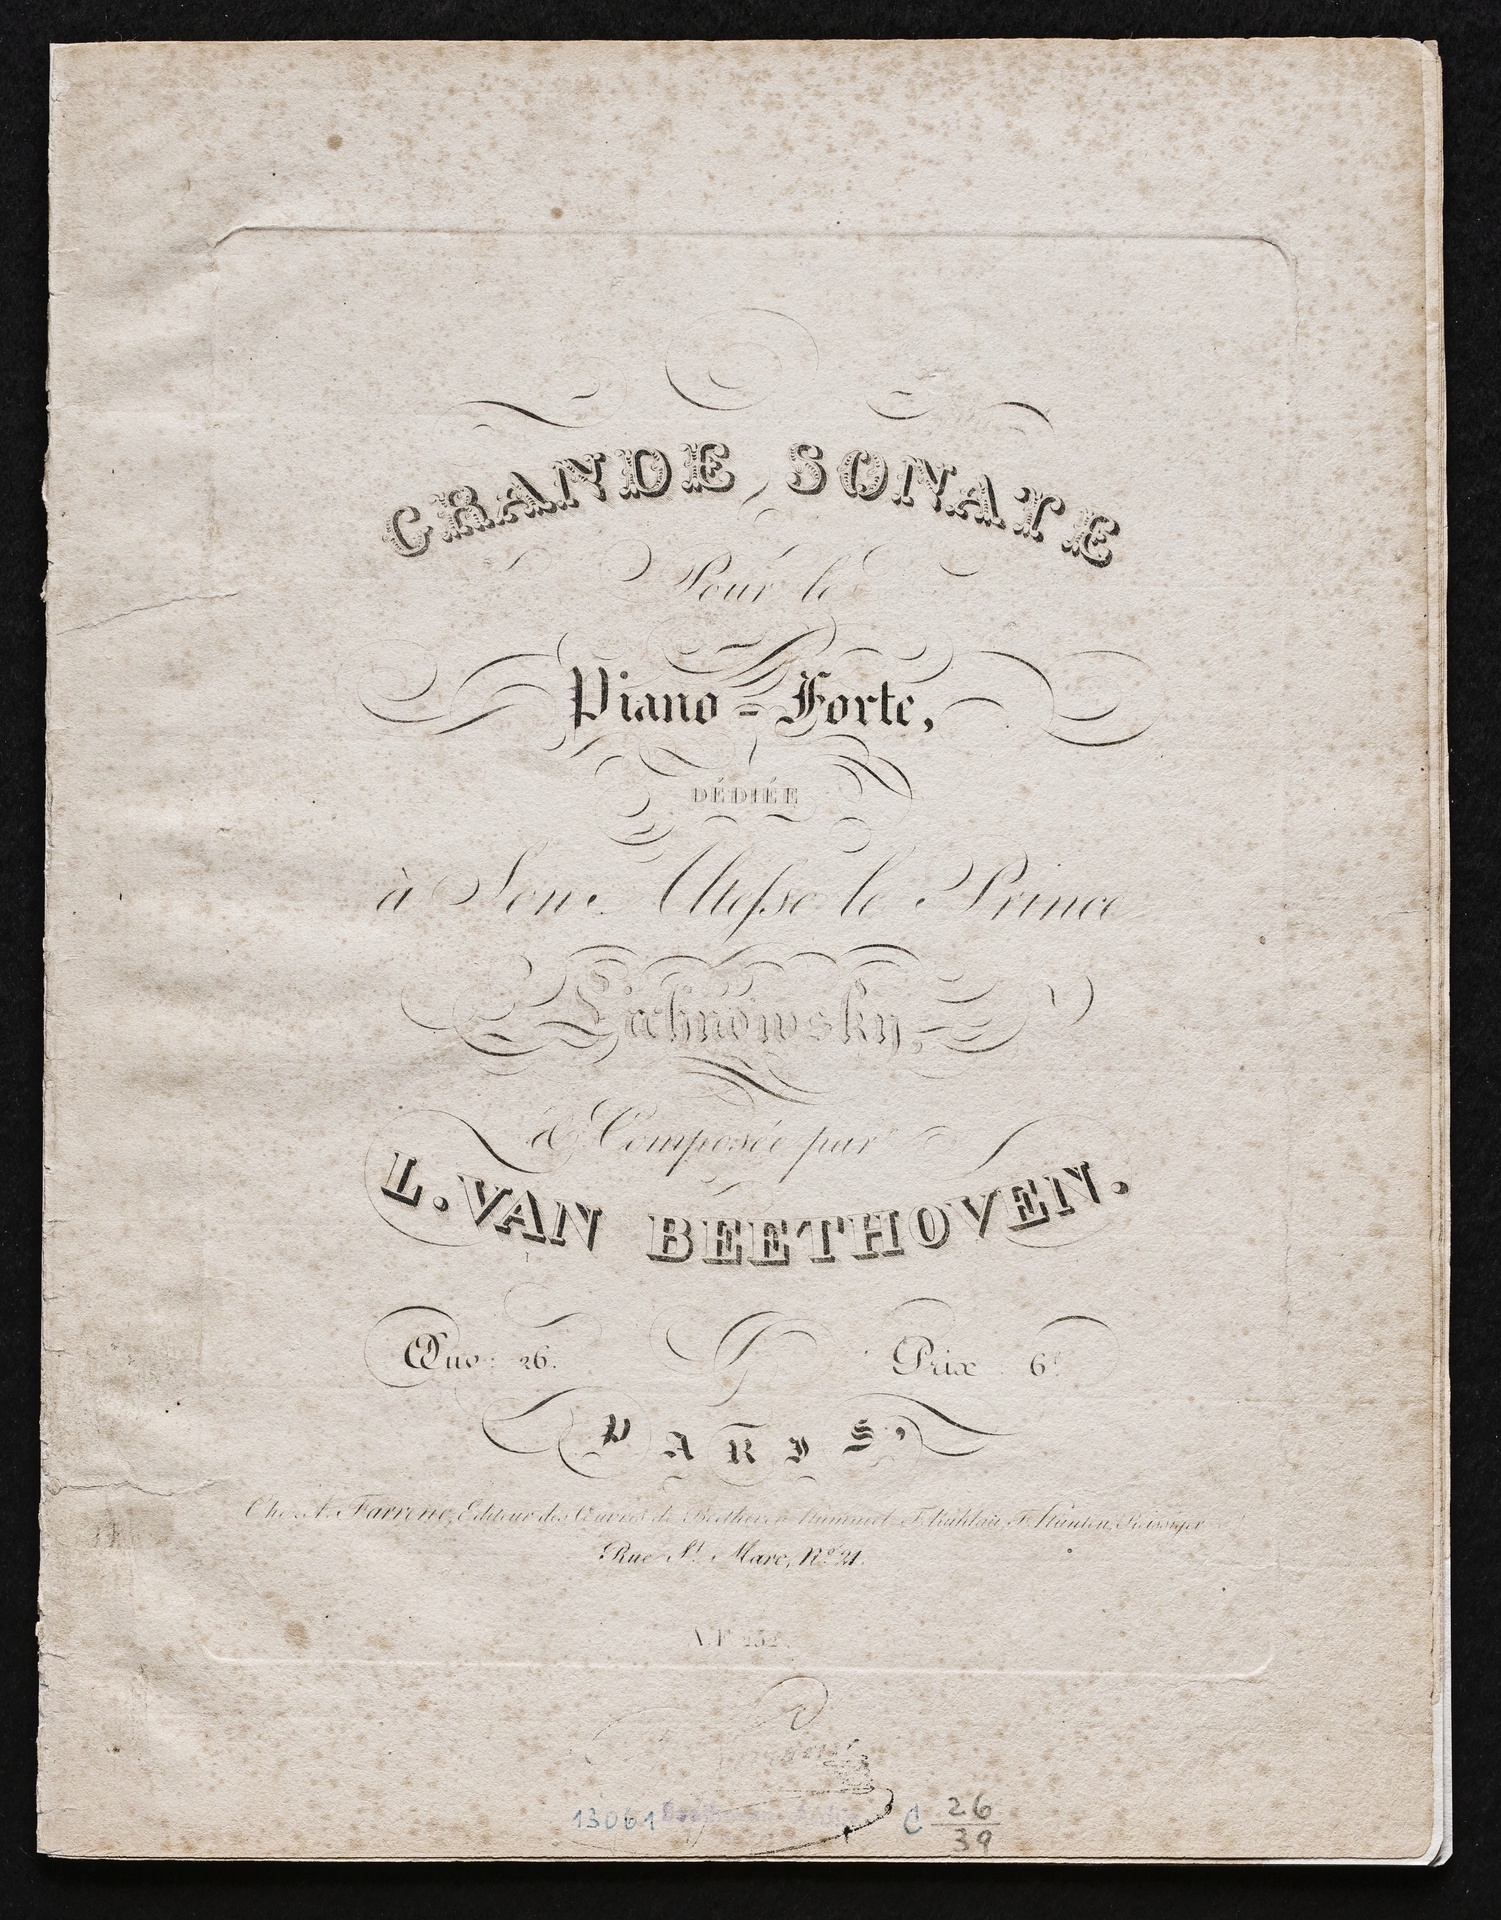 GRANDE SONATE
Pour le
Piano=Forte,
DÉDIÉE
à Son Altesse le Prince
Lichnowsky,
& Composée par
L. VAN BEETHOVEN.
Œuv: 26. Prix 6f.
PARIS,
Chez A. Farrenc, Editeur des Œuvres de Beethoven Hummel F. Kuhlau, F. Hünten, Reissiger
Rue St. Marc, No. 21.
A.F. 252.
13061 C 26
39